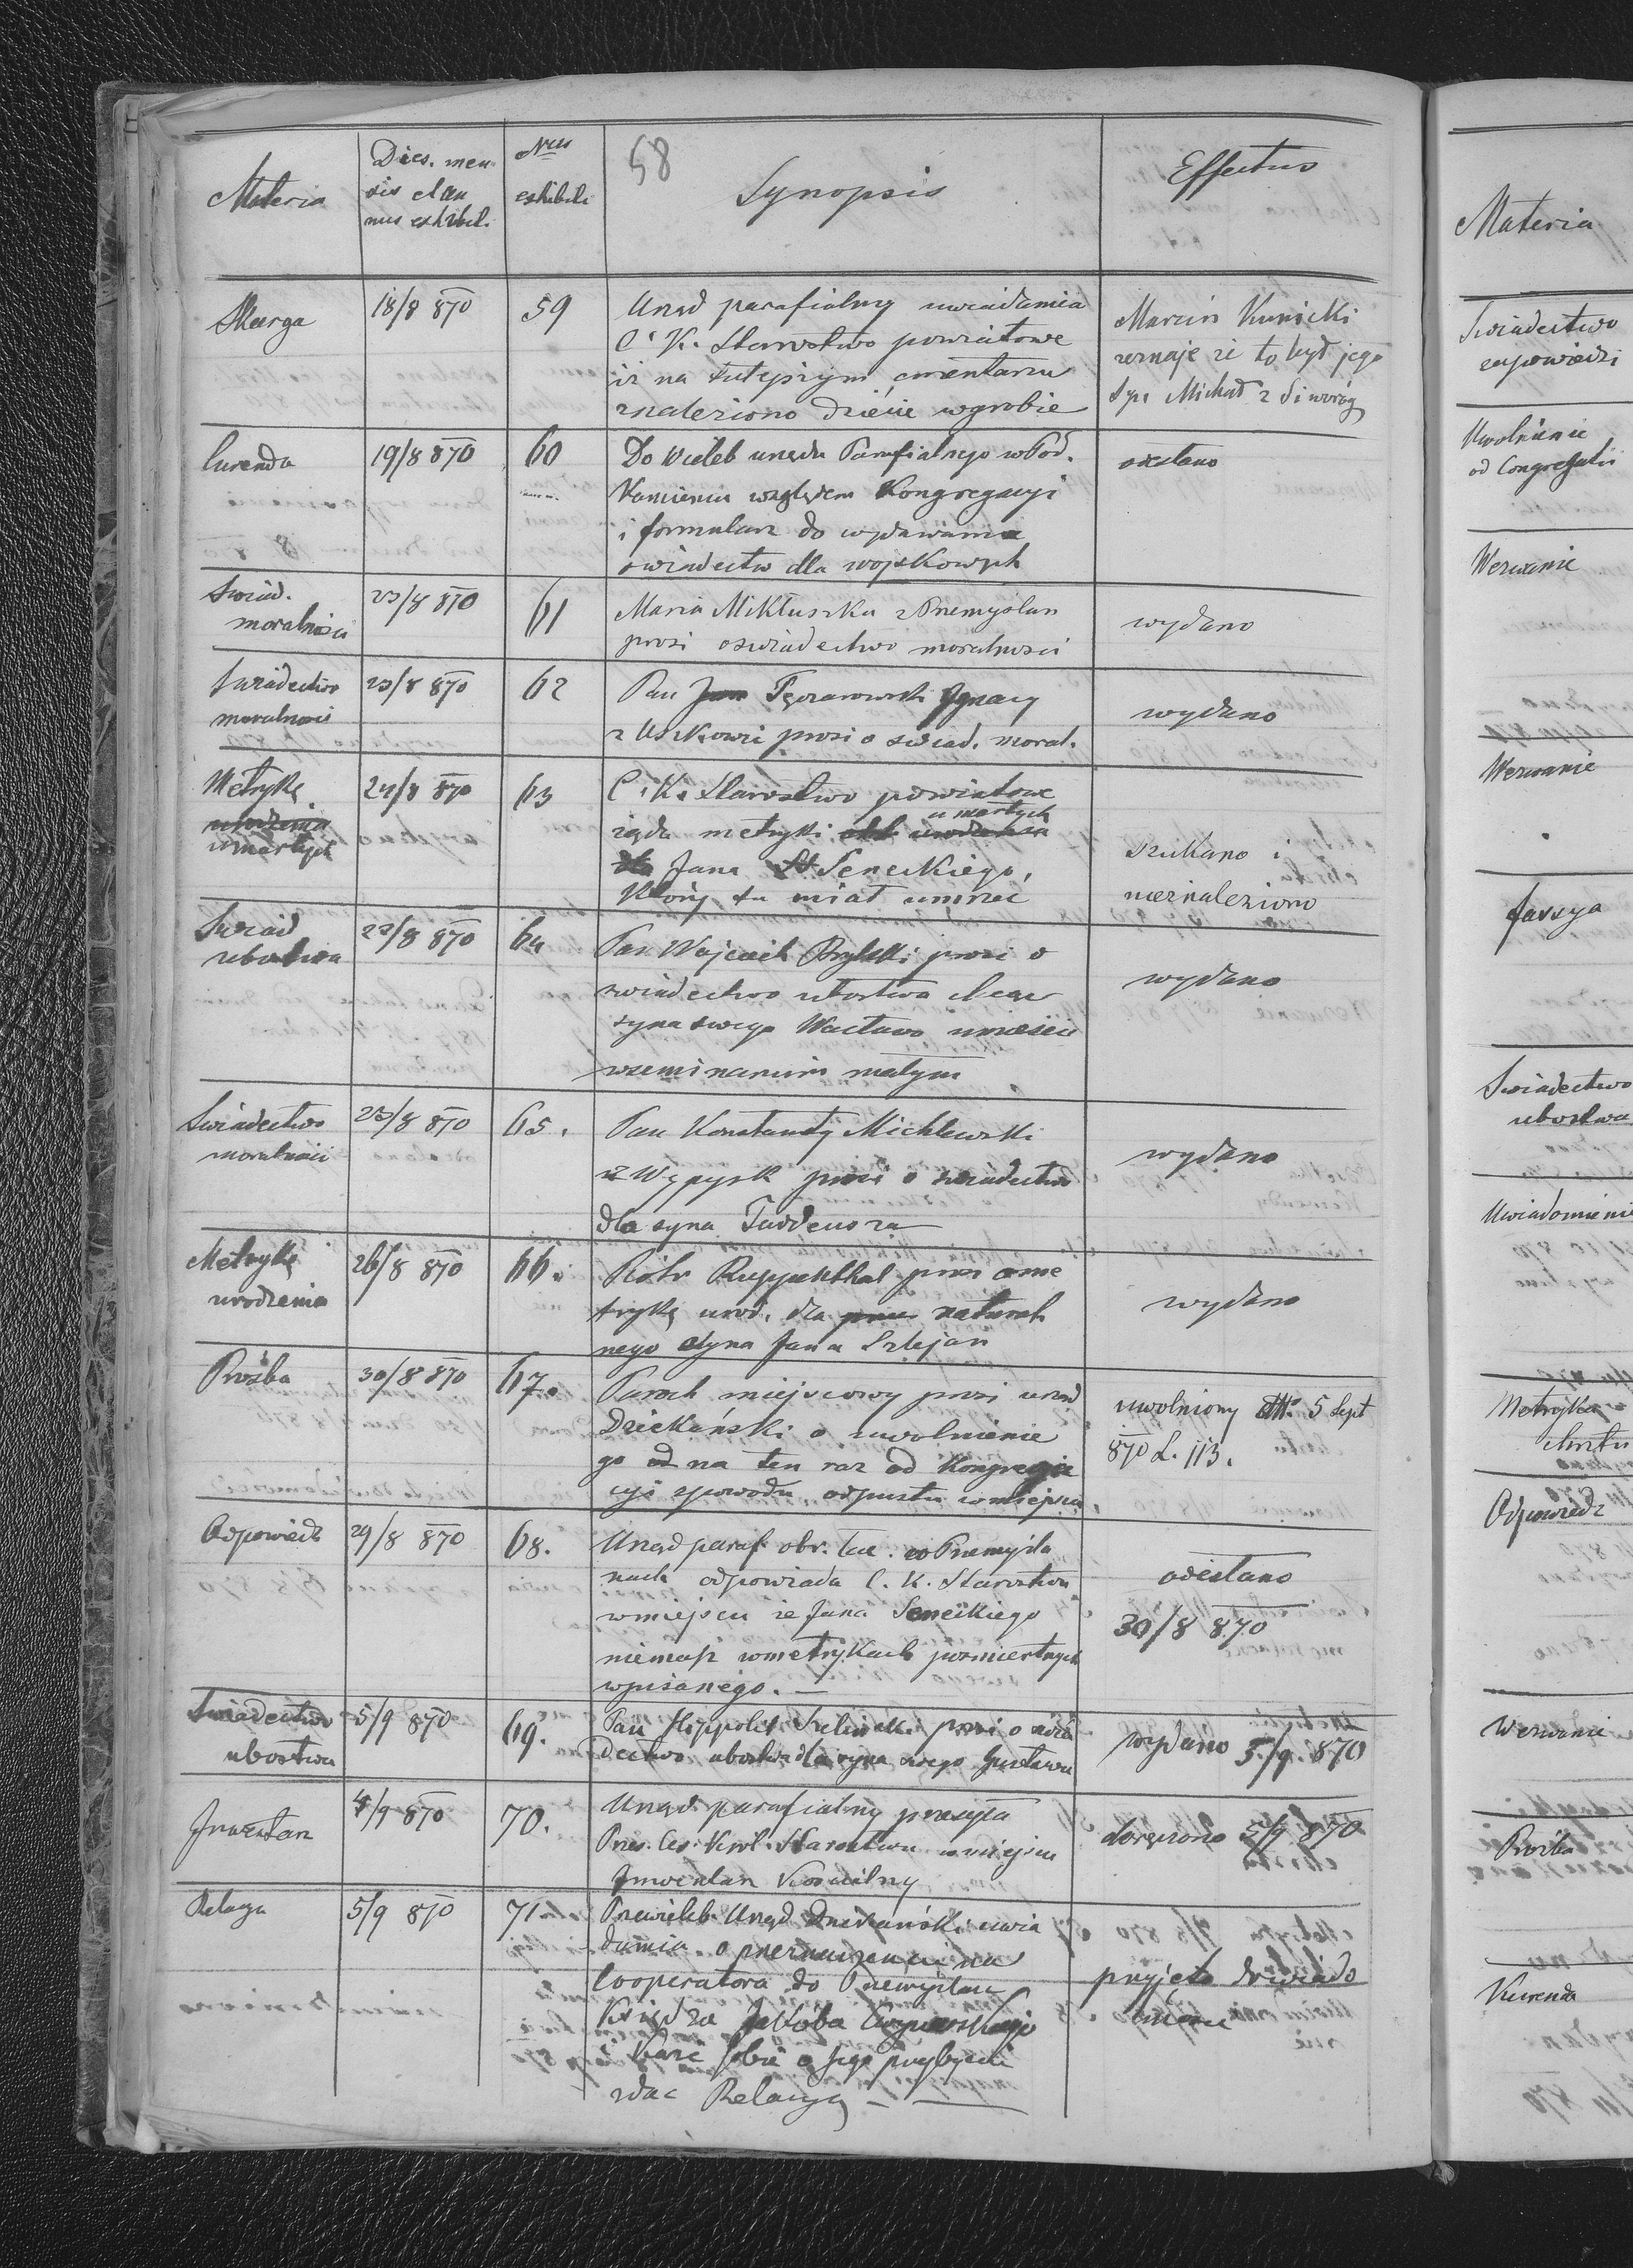 58
Materia
Dies. men
sis et an
nus exhibit.
Nrus
exhibiti
Synopsis
Effectus
Skarga
18/8 870
59
Urząd parafialny uwiadamia
C. K. Starostwo powiatowe
iż na tutejszym cmentarzu
znaleziono dziecie wgrobie
Marcin Kunicki
zeznaje że to był jego
Syn Michał z
Curenda
19/8 870
60
Do Wieleb urzędu Parafialnego w Pod.
Kamieniu względem Kongregacyi
i formularz do wydawania
świadectw dla wojskowych
odesłano
Swiad.
moralności
23/8 870
61
Maria Mikłuszka z Przemyślan
prosi oswiadectwo moralności
wydano
Swiadectwo
moralności
23/8 870
62
Pan Jan Ignacy
z Uszkowic prosi o świad. moral.
wydano
Metrykę
urodzenia
umarłych
24/8 870
63
C. K. Starostwo powiatowe
umarłych
żąda metryki urodzenia
Jana Seneckiego,
Który tu miał umrzeć
szukano i
nieznaleziono
Swiad
ubostwa
23/8 870
64
Pan Wojciech prosi o
swiadectwo ubostwa chcąc
syna swego Wacława umieścić
wseminarium małym
wydano
Swiadectwo
moralności
23/8 870
65.
Pan Konstanty Michlewski
z Wypysk prosi o swiadectwo
dla syna Tadeusza
wydano
Metrykę
urodzenia
26/8 870
66.
Piotr Ruppenthal prosi ome
trykę urod. dla natural
nego syna Jana Szlejan
wydano
Prośba
30/8 870
67.
Paroch miejscowy prosi urząd
Dziekański o uwolnienie
go od na ten raz od Kongrega
cyi zpowodu odpustu wmiejscu
uwolniony 5 Sept
870 L. 113.
Odpowiedź
29/8 870
68.
Urząd paraf. obr. łac. w Przemyśla
nach odpowiada C. K. Starostwu
wmiejscu że Jana Seneckiego
niemasz wmetrykach pośmiertnych
wpisanego. —
odesłano
30/8 870
Swiadectwo
ubostwa
5/9 870
69.
Pan Hippolit prosi o świa
dectwo ubostwa dla syna swego Gustawa
wydano 5/9 870
Inwentarz
4/9 870
70.
Urząd parafialny przesyła
Prześ. Ces. Krol. Starostwu wmiejscu
Inwentarz Kościelny
doręczono 5/9 870
Relacya
5/9 870
71
Przewieleb. Urząd Dziekański uwia
damia o przeznaczeniu na
Cooperatora do Przemyślan
Księdza Jakóba
i Każe sobie o jego przybyciu
zdac Relacyę —
przyjęto do wiado
mości
Materia
Swiadectwo
zapowiedzi
Uwolnienie
od Congregatii
Wezwanie
Wezwanie
fassya
Swiadectwo
ubostwa
Uwiadomienie
Metryka
chrztu
Odpowiedz
Wezwanie
Prośba
Kurenda